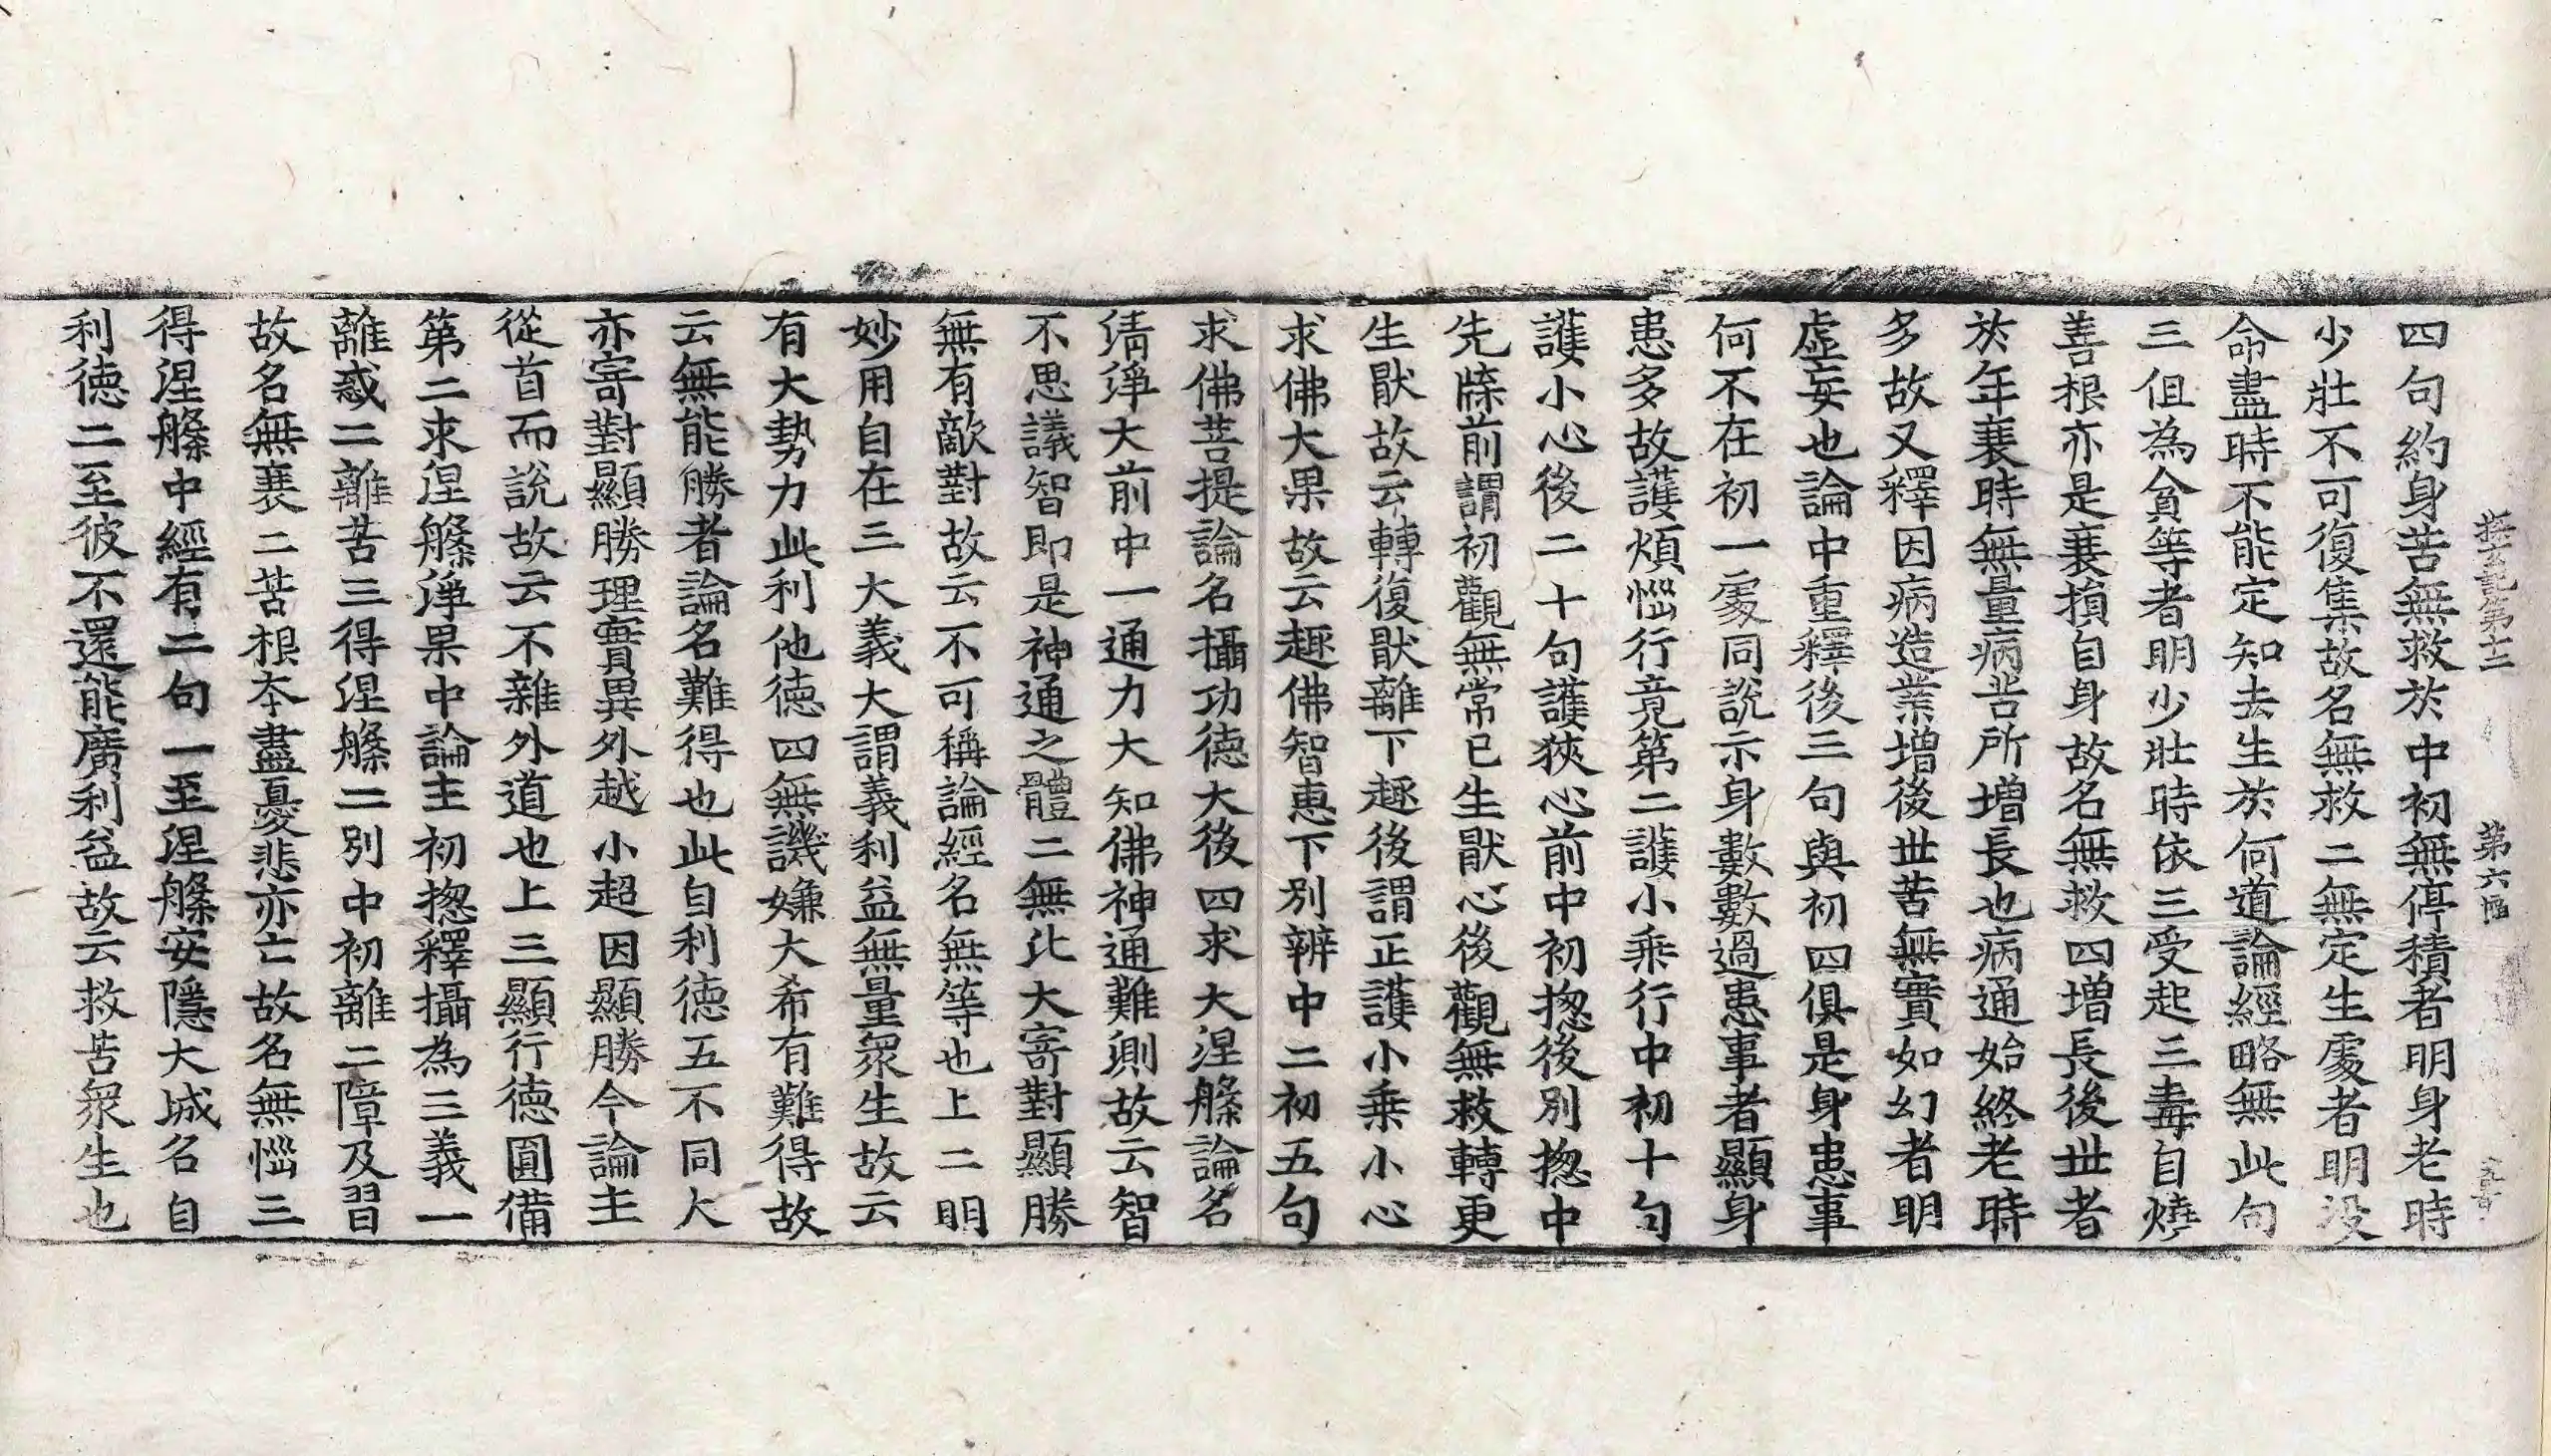 探玄記第十二 第六張
四句約身苦無救於中初無停積者明身老時
少壯不可復集故名無救二無定生處者明没
命盡時不能定知去生於何道論經略無此句
三但為貪等者明少壯時依三受起三毒自燒
善根亦是衰損自身故名無救四増長後世者
於年衰時無量病苦所増長也病通始終老時
多故又釋因病造業增後世苦無實如幻者明
虛妄也論中重釋後三句與初四俱是身患事
何不在初一處同說示身數數過患事者顯身
患多故護煩惱行竟第二護小乘行中初十句
護小心後二十句護狹心前中初揔後別揔中
先牒前謂初觀無常已生猒心後觀無救轉更
生猒故云轉復猒離下趣後謂正護小乘小心
求佛大果故云趣佛智恵下別辨中二初五句
求佛菩提論名攝功德大後四求大涅槃論名
清淨大前中一通力大知佛神通難測故云智
不思議智即是神通之體二無比大寄對顯勝
無有敵對故云不可稱論經名無等也上二明
妙用自在三大義大謂義利益無量衆生故云
有大勢力此利他德四無譏嫌大希有難得故
云無能勝者論名難得也此自利德五不同大
亦寄對顯勝理實異外越小超因顯勝今論主
從首而說故云不雜外道也上三顯行德圓備
第二求涅槃淨果中論主初揔釋攝為三義一
離惑二離苦三得涅槃二別中初離二障及習
故名無衰二苦根本盡憂悲亦亡故名無惱三
得涅槃中經有二句一至涅槃安隱大城名自
利德二至彼不還能廣利益故云救苦衆生也